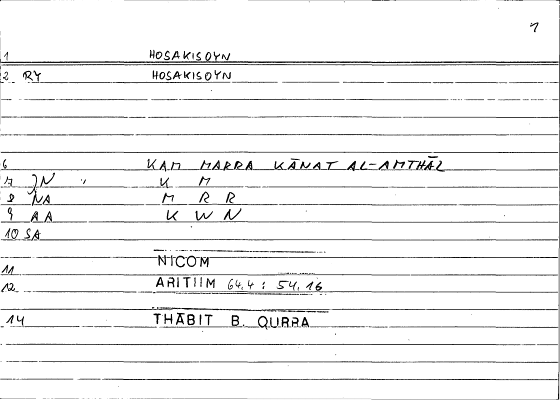 1
1 HOSAKISOYN
2 RY HOSAKISOYN
6 KAM MARRA KĀNAT AL-AMTHĀL
7 JN K M
8 NA M R R
9 AA K W N
10 SA
11 NICOM
12 ARITIIM 64,4 : 54,16
14 THĀBIT B. QURRA